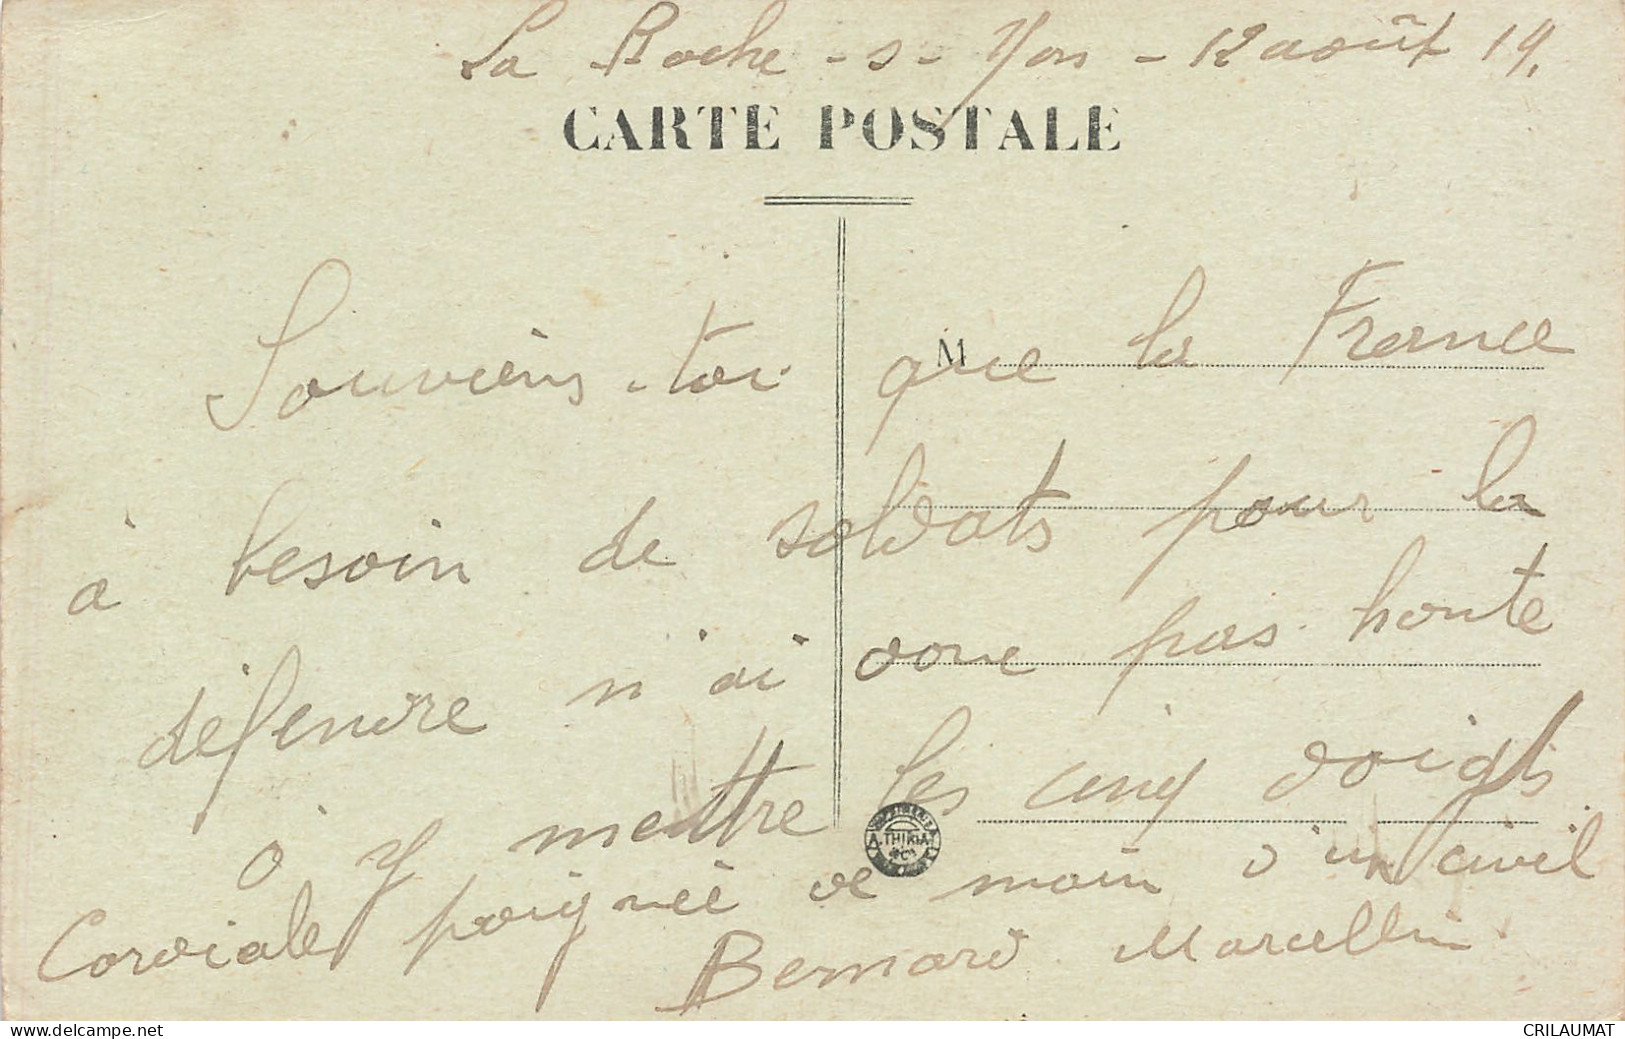 La Roche-s-Yon - 12 août 19.
CARTE POSTALE
M
Souviens-toi que la France
a besoin de soldats pour la
défendre n'ai donc pas honte
à y mettre les cinq doigts
Cordiale poignée de main d'un civil
Bernard Marcellin
THIRIA
CRILAUMAT
www.delcampe.net